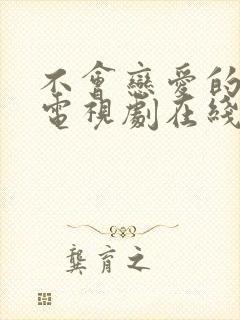 不會戀愛的
電視劇在綫
龔育之